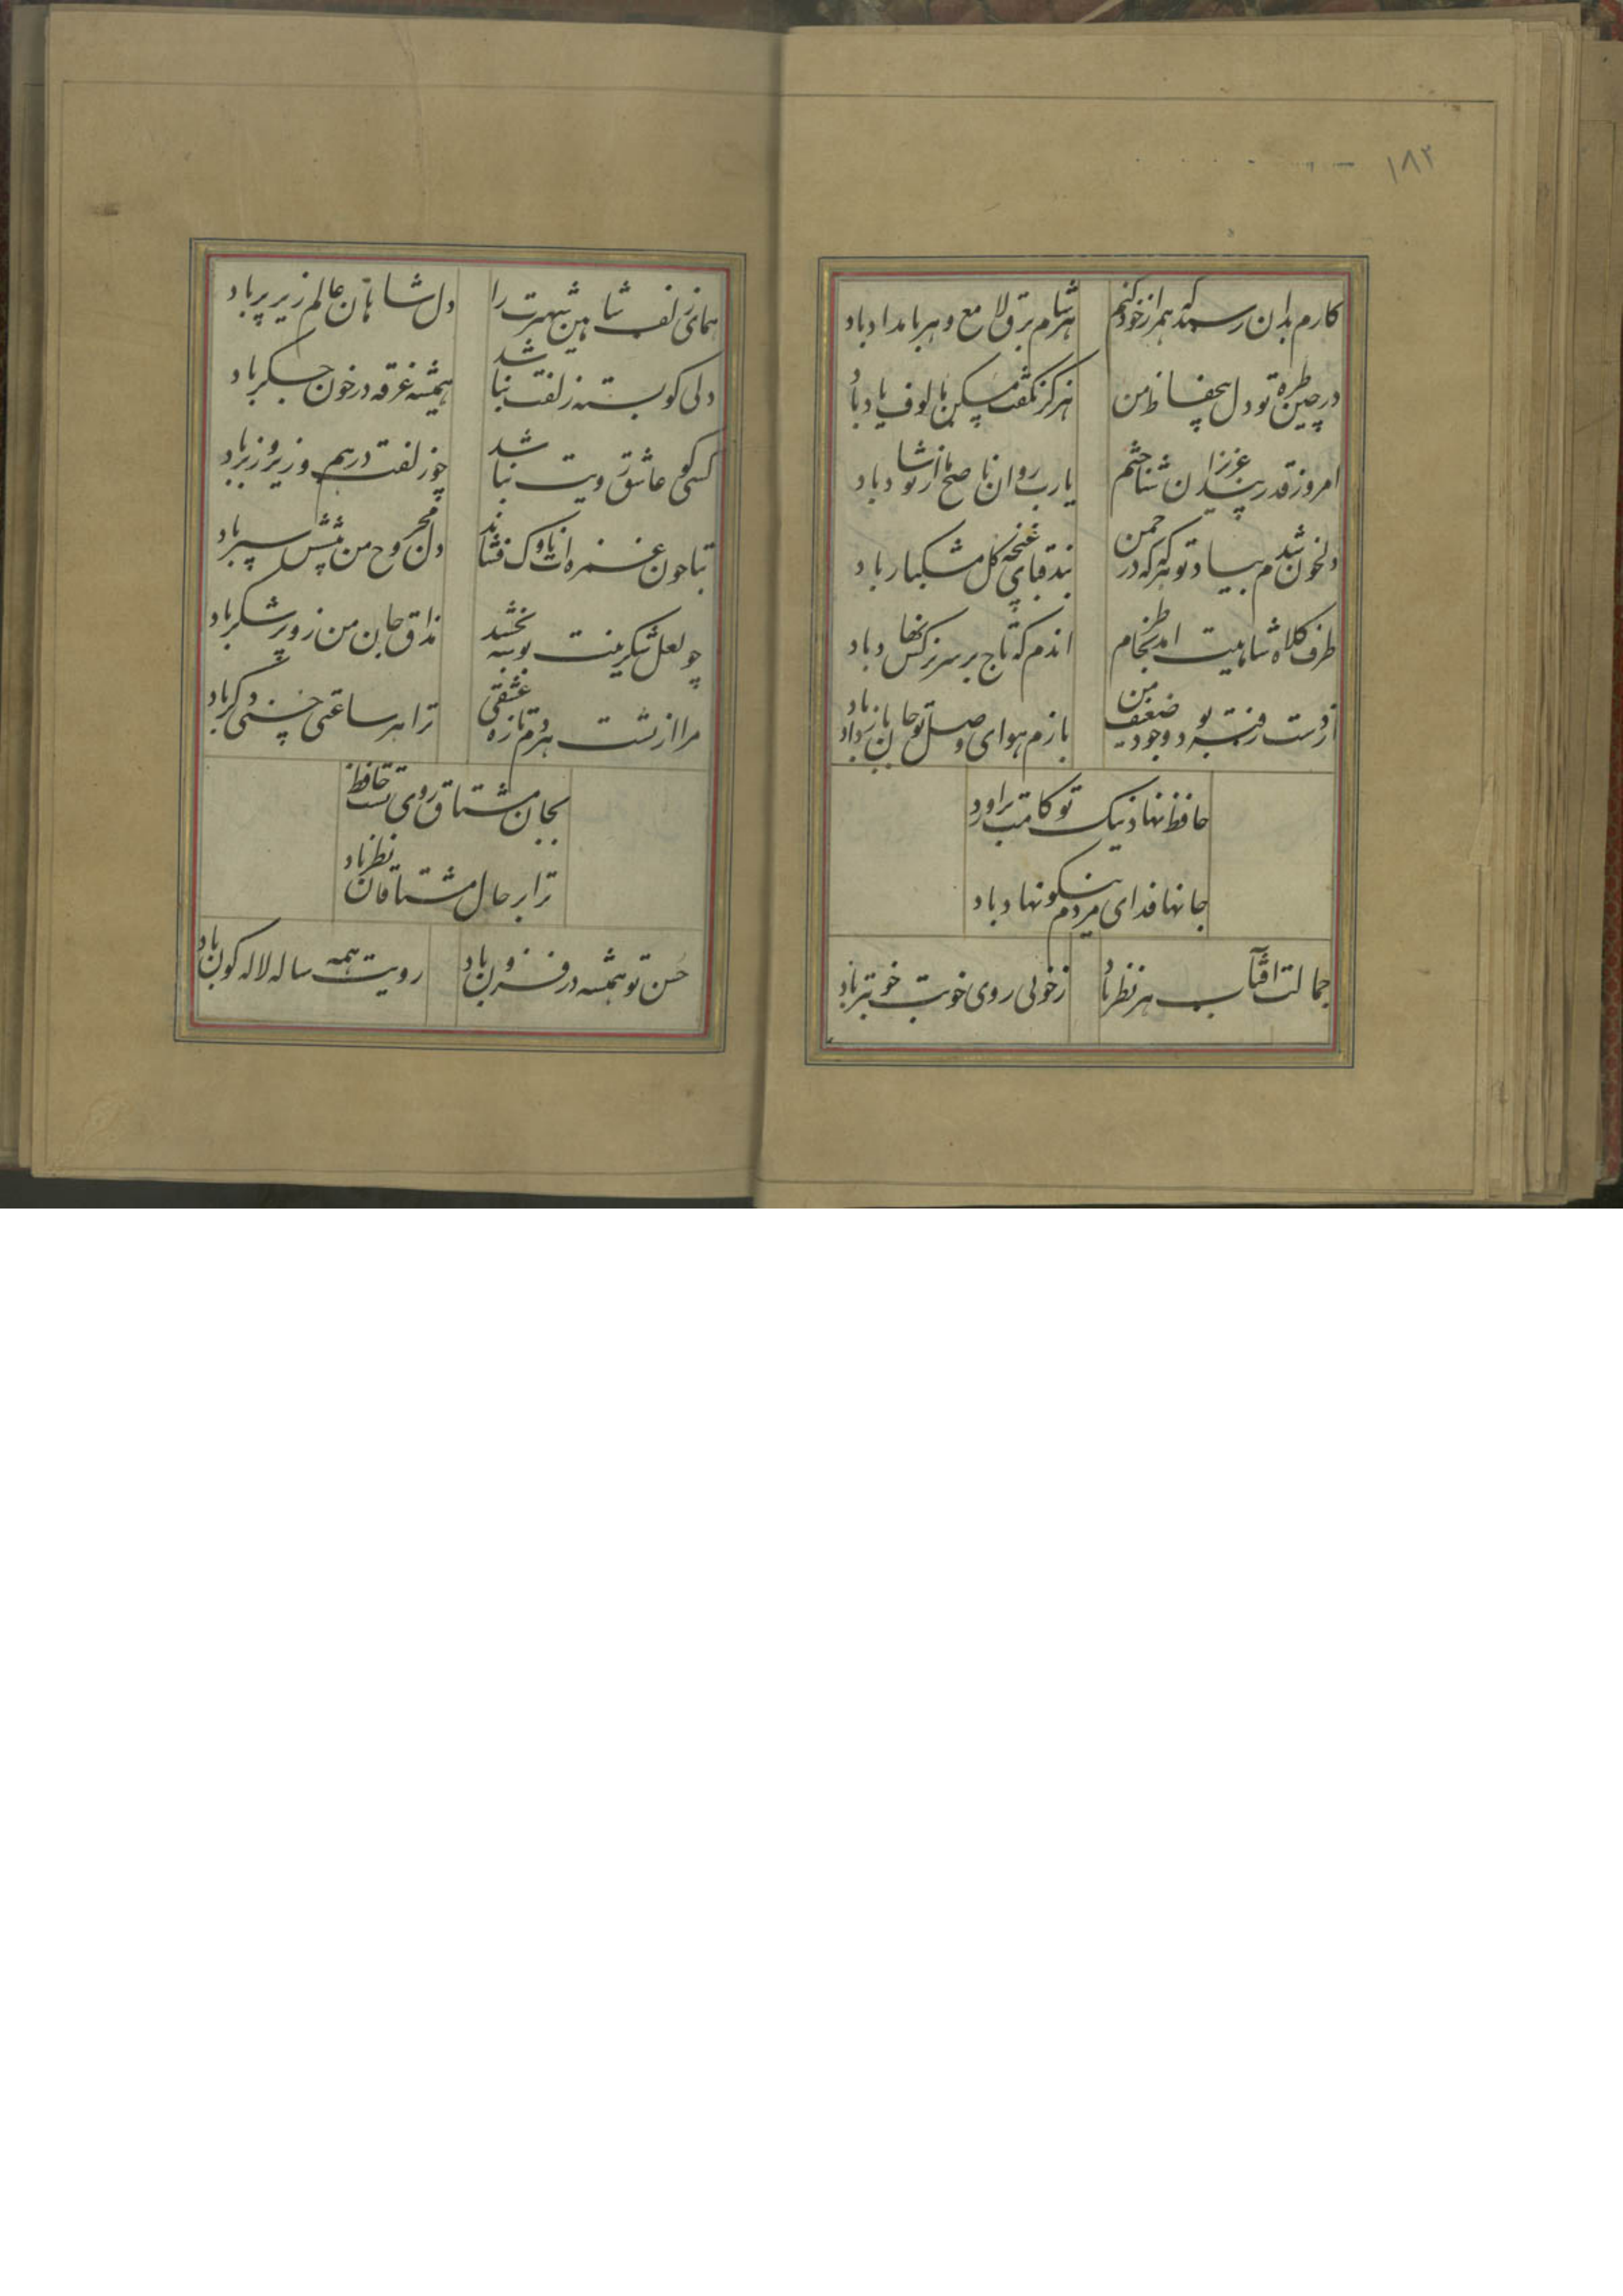 ۱۸۲
کارم بدان رسید که همراز خود کنم
هر شام برق لامع و هر بامداد باد
در چین طره تو دل بیحفاظ من
هرگز نگفت مسکن مالوف یاد باد
امروز قدر پند عزیزان شناختم
یارب روان ناصح ما از تو شاد باد
دلخون شدم بیاد تو هرگه که در چمن
بند قبای غنچه گل مشکبار باد
طرف کلاه شاهیت امد بخاطرم
اندم که تاج بر سر نرگس نهاد باد
از دست رفته بود وجود ضعیف من
بازم هوای وصل تو جان باز داد باد
حافظ نهاد نیک تو کامت براورد
جانها فدای مردم نیکو نهاد باد
جمالت افتاب هر نظر باد
ز خوبی روی خوبت خوبتر باد
همای زلف شاهین شهپرت را
دل شاهان عالم زیر پر باد
دلی کو بسته زلفت نباشد
همیشه غرقه در خون جگر باد
کسی کو عاشق رویت نباشد
چو زلفت درهم و زیر و زبر باد
بتا چون غمزه ات ناوک فشاند
دل مجروح من پیشش سپر باد
چو لعل شکرینت بوسه بخشد
مذاق جان من زو پر شکر باد
مرا از تست هر دم تازه عشقی
ترا هر ساعتی حسنی دگر باد
بجان مشتاق روی تست حافظ
ترا بر حال مشتاقان نظر باد
حسن تو همیشه در فزون باد
رویت همه ساله لاله کون باد